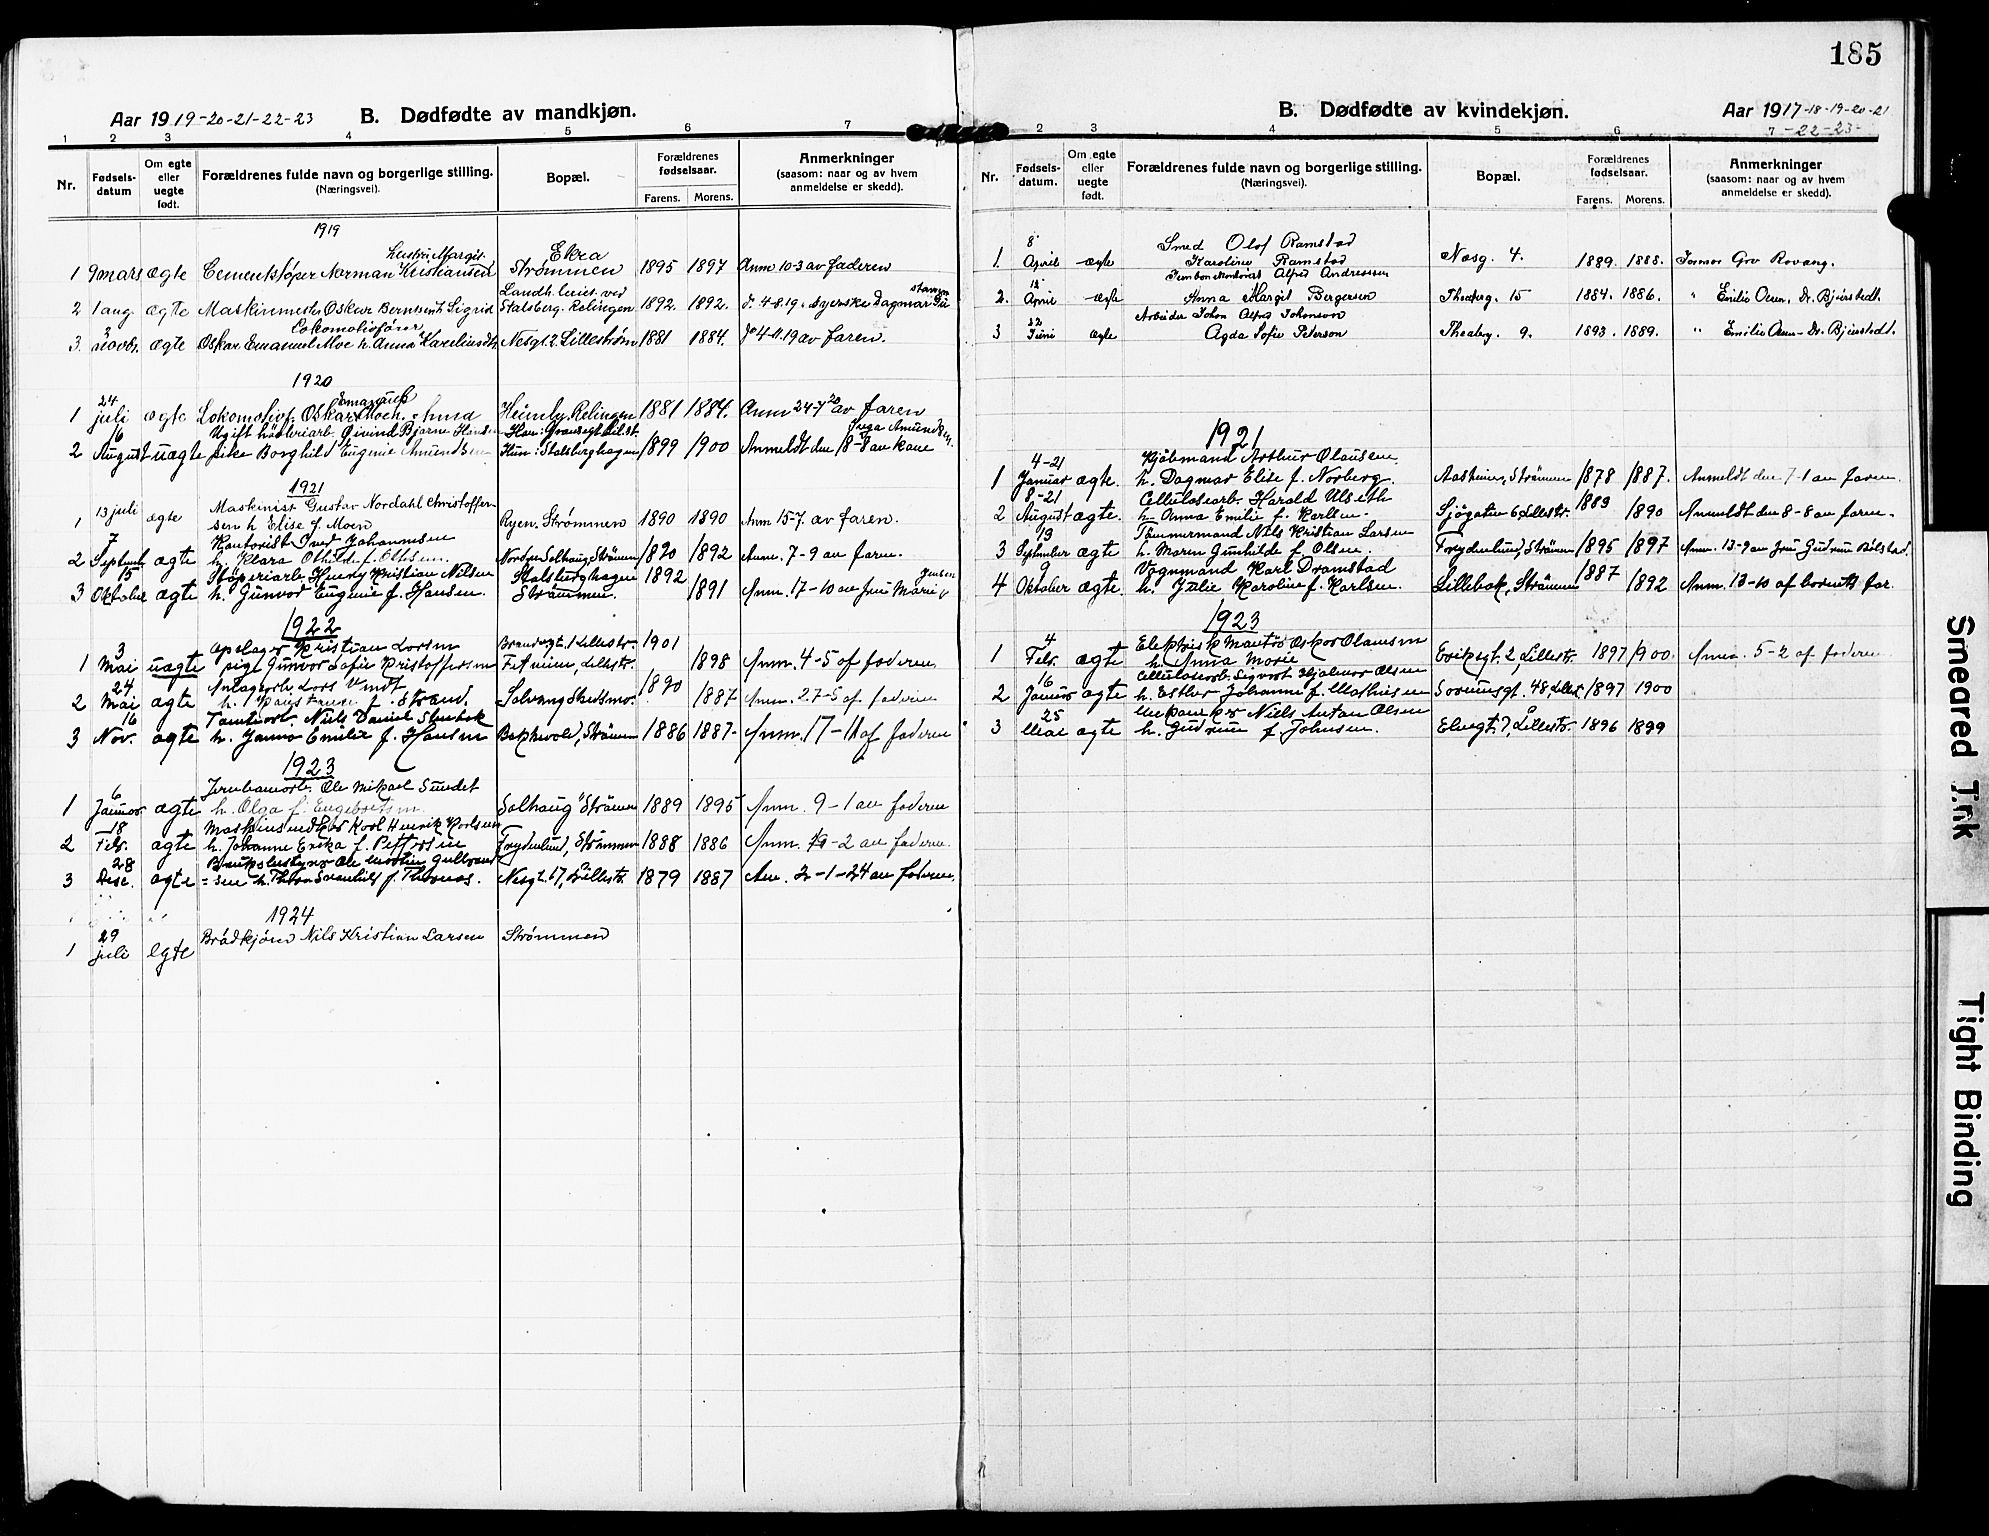 185
Aar 1919-20-21-22-23 B. Dødfødte av mandkjøn.
1 2 3 4 5 6 7
Nr. Fødsels-datum Om egte eller uegte født. Forældrenes fulde navn og borgerlige stilling. (Næringsvei). Bopæl. Forældrenes fødselsaar. Farens. Morens. Anmerkninger (saasom: naar og av hvem anmeldelse er skedd).
1919
Margit Ekra
1 9 mars ægte Cementstøper Norman Kristiansen Strømmen 1895 1897 Anm 10-3 av faderen
Landh. ved
2 1 aug. ægte Maskinmester Oskar Sigrid Stalsberg. Relingen 1892. 1892. 4-8.19. Dagmar
Lokomotivfører
3. 3 novbr. ægte Oskar Emanuel Moe h. Anna Nesgt. 2 Lillestrøm 1881 1884. 4-11.19 av faren.
1920
Emanuel
1 24 juli ægte Lokomotivf. Oskar Heimly. Relingen 1881 1884. Anm 24-7 20 av faren
Ugift Eivind Bjarne Hansen Inga Amundsen
2 16 August uægte pike Borghild Eugenie Amundsen Hun: Stalsberghagen 1899 1900 Anmeldt den 18-8 av kone
1921
Maskinist Gustav Nordahl Christoffer-
1 13 juli ægte sen h Elise f. Moen Ryen. Strømmen 1890 1890 Anm 15-7. av faren.
Kontorist Johannesen
2 7 Septemb. ægte h. Klara Othilde f. Solhaug Strømmen 1890 1892 Anm. 7-9 av faren.
Støperiarb. Henry Kristian Nilsen Stalsberghagen 1892 Jensen
3 15 Oktober ægte h. Gunvor Eugenie f. Hansen. Strømmen 1891 Anm. 17-10 av fru Marie
1922
Opslager Kristian Larsen Lillestr. 1901
1 3 Mai uægte pige Gunvor Sofie Kristoffersen Lillestr. 1898 Anm. 4-5 af faderen
Lars 1890
2 24 Mai ægte h. f. Strand. Solvang Skedsmo. 1887 Anm. 27-5 af faderen
Tomtearb. Niels Daniel
3 16 Nov. ægte h. Janna Emilie f. Hansen Strømmen 1886 1887- Anm. 17-11 af faderen
1923
Jernbanearb. Ole Mikael Sundet
1 6 Januar ægte h. Olga f. Engebretsen. Solhaug Strømmen 1889 1895 Anm. 9-1 av faderen
Karl Henrik Karlsen
2 18 Febr. ægte h. Johanne Erika f. Pettersen Frydenlund, Strømmen 1888 1886 Anm. -2 av faderen.
Brukbestyrer Ole Martin
3 28 Dese. ægte = sen h. f. Thomas. Nesgt. 17, Lillestr. 1879 1887 Anm. 2-1-24 av faderen.
1924
1 29 juli egte Nils Kristian Larsen Strømmen
B. Dødfødte av kvindekjøn. Aar 1917-18-19-20-21
-22-23-
2 3 4 5 6
Nr. Fødsels-datum. Om egte eller uegte født. Forældrenes fulde navn og borgerlige stilling. (Næringsvei). Bopæl. Forældrenes fødselsaar. Farens. Morens. Anmerkninger (saasom: naar og av hvem anmeldelse er skedd).
8 Smed Olof Ramstad
1. April ægte Karoline Ramstad Næsg. 4. 1889. 1888. Jormor Gro Rovang.
12 Alfred Andressen
2. April ægte Anna Margit Bergersen Theaterg. 15 1884. 1886. " Emilie Olsen, Dr. Bjerstedt.
22 Arbeider Johan Alfred Johanson
3 Juni ægte Agda Sofie Peterson Theaterg. 9. 1893. 1889. " Emilie Olsen- Dr. Bjerstedt.
1921
4-21 Kjøbmand Arthur Olausen.
1 Januar ægte. h. Dagmar Elise f. Norberg. Aasheim, Strømmen 1878 1887. Anmeldt den 7-1 av faren.
8-21 Cellulosearb. Harald Ulseth 1889
2 August ægte. h. Anna Emilie f. Karlsen. Sjøgaten 6 Lillestr. 1890 Anmeldt den 8-8 av faren.
13 Tømmermand Nils Kristian Larsen
3 September ægte h. Maren Gunhilde f. Olsen. Frydenlund, Strømmen 1895 1897 Anm. 13-9 av fru Gudrun Bølstad.
9 Vognmand Karl Dramstad 1887
4 Oktober ægte. h. Julie Karoline f. Karlsen. Lillebak, Strømmen 1892 Anm. 13-10 af barnets far.
1923
4 Elektrisk Montør Oskar Olausen
1 Febr. ægte h. Anna Marie Eriksgt. 2 Lillestr. 1897 1900. Anm. 5-2 af faderen
16 Cellulosearb. Sigvart Hjalmar Olsen
2 Januar ægte h. Esther Johanne f. Mathisen 48, Lillestr. 1897 1900
25 Mekaniker Niels Anton Olsen
3 Mai ægte h. Gudrun f. Johnsen. Elvegt. 7, Lillestr. 1896 1899
Smeared Ink
Tight Binding